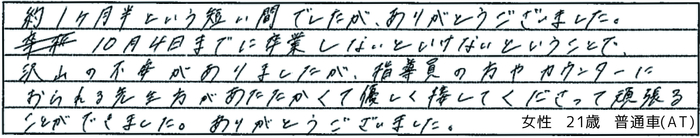 約1ヶ月半という短い間でしたが、ありがとうございました。
10月4日までに卒業しないといけないということで、
沢山の不安がありましたが、指導員の方やカウンターに
おられる先生方があたたかくて優しく接してくださって頑張る
ことができました。ありがとうございました。
女性 21歳 普通車(AT)